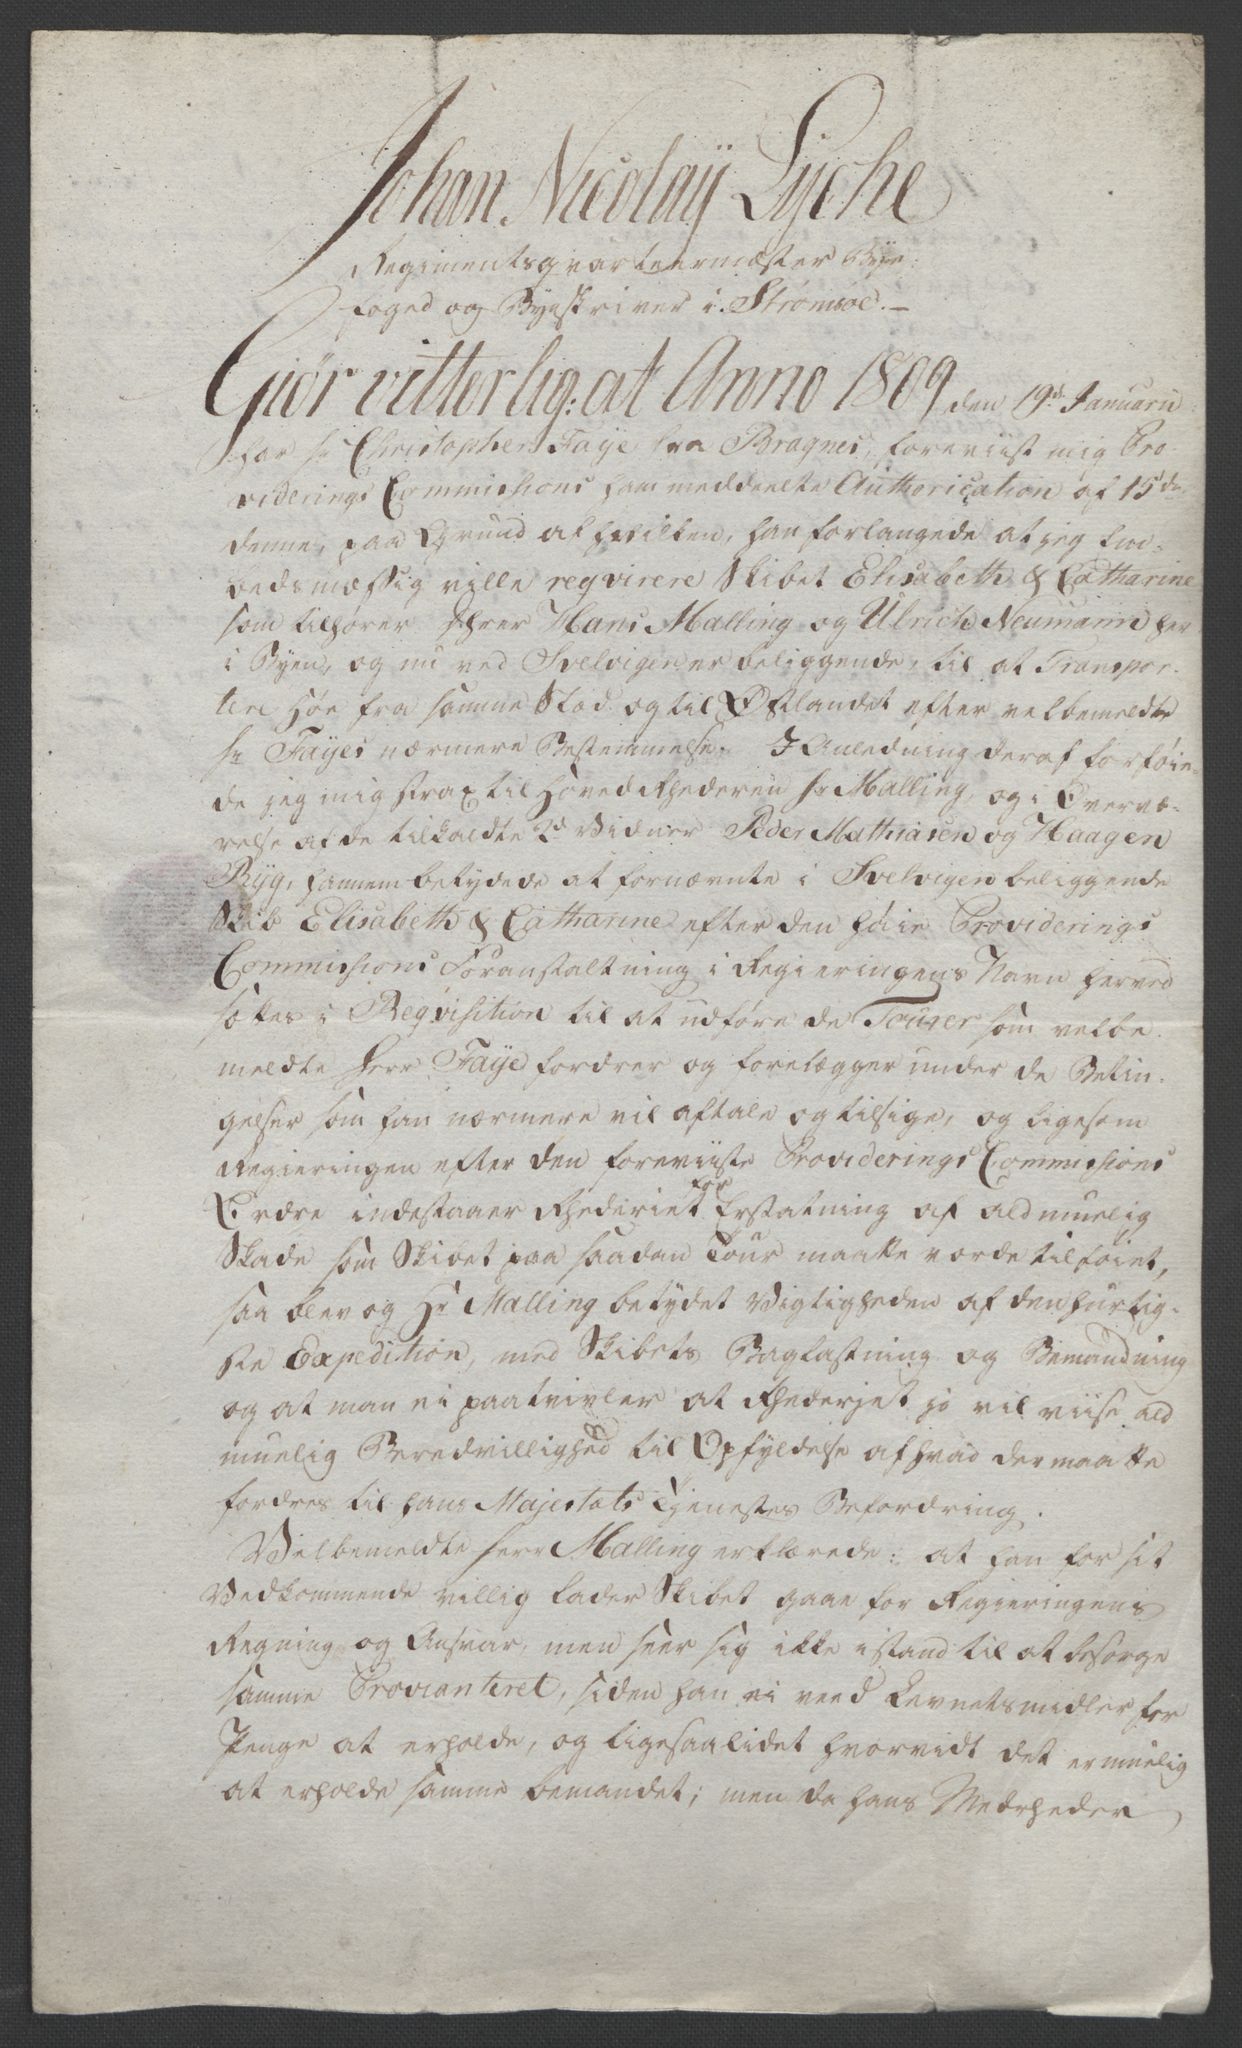 Johan Nicolaÿ Lyche
Regimentsqvarteermester Bye
foged og Byeskriver i Strømsøe. —
Giör vitterlig: at Anno 1809 den 19de Januarii
har hr Christopher Faye fra Bragnes, foreviist mig Pro
viderings Commissions ham meddeelte Authorication af 15de
denne, paa Grund af hvilken, han forlangede at jeg Em¬
bedsmæssig ville reqvirere Skibet Elisabeth & Catharine
som tilhører Hrer Hans Malling og Ulrich Neumann her
i Byen, og nu ved Svelvigen er beliggende, til at Transpor¬
tere Høe fra samme Stæd og til Østlandet efter velbemeldte
hr Fayes nærmere Bestemmelse. I Anledning deraf forføie¬
de jeg mig strax til Hoved Rhederen hr Malling, og i Overvæ¬
relse af de tilkaldte 2de Vidner Peder Mathiasen og Haagen
Byg, hannem betydede at fornævnte i Svelvigen beliggende
Skib Elisabeth & Catharine efter den høie Providerings
Commissions Foranstaltning i Regieringens Navn herved
sættes i Reqvisition til at udføre de Tourer som velbe
meldte Herr Faye fordrer og forelægger under de Betin¬
gelser som han nærmere vil aftale og tilsige, og ligesom
Regieringen efter den foreviiste Providerings Commissions
Ordre indestaaer Rhederiet for Erstatning af ald muelig
Skade som Skibet paa saadan Tour maatte vorde tilføiet,
saa blev og Hr Malling betydet Vigtigheden af den hurtig¬
ste Expedition, med Skibets Baglastning og Bemanding
og at man ei paatvivler at Rhederiet jo vil viise ald
muelig Beredvillighed til Opfyldelse af hvad der maatte
fordres til hans Majestæts Tjenestes Befordring.
Velbemeldte Herr Malling erklærede: at han for sit
Vedkommende villig lader Skibet gaae for Regieringens
Regning og Ansvar, men seer sig ikke istand til at besørge
samme Provianteret, siden han ei veed Levnetsmidler for
Penge at erholde, og ligesaalidet hvorvidt det er muelig
at erholde samme bemandet; men da hans Medrheder